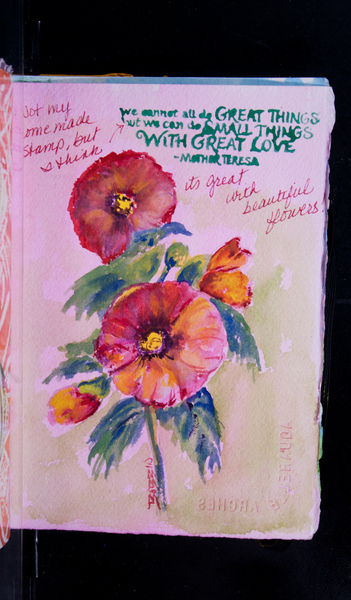 we cannot all do GREAT THINGS
but we can do SMALL THINGS
WITH GREAT LOVE
-MOTHER TERESA
Not my
home made
Stamp, but
I think
its great
with
beautiful
flowers!